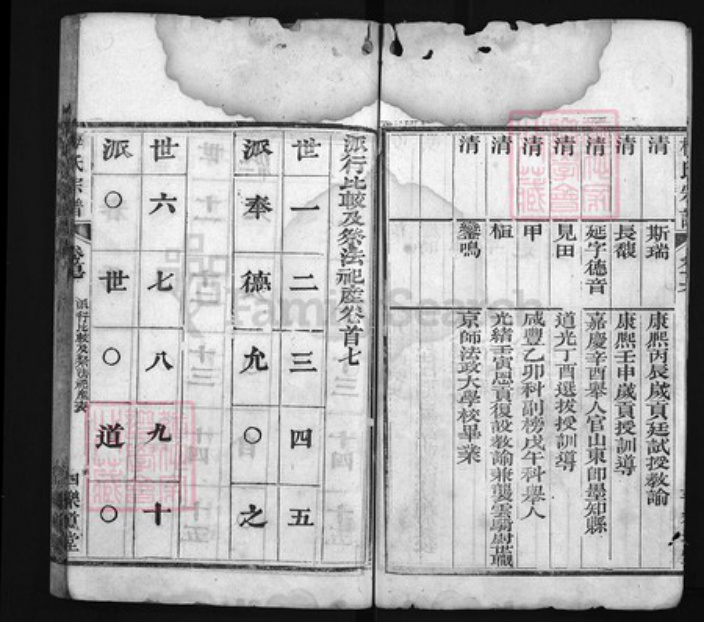 清 斯瑞 康熙丙辰歲貢廷試授教諭
清 長馥 康熙壬申歲貢授訓導
清 延字德音 嘉慶辛酉舉人官山東即墨知縣
清 見田 道光丁酉選拔授訓導
清 甲 咸豐乙卯科副榜戊午科舉人
清 植 光緒壬寅恩貢復設教諭兼襲雲騎尉世職
清 鑾鳴 京師法政大學校畢業
派行比較及祭法祀產卷首七
世 一 二 三 四 五
派 奉 德 允 〇 之
世 六 七 八 九 十
派 〇 世 〇 道 〇
氏宗譜
派行比較及祭法祀產表
樂道堂
FamilySearch